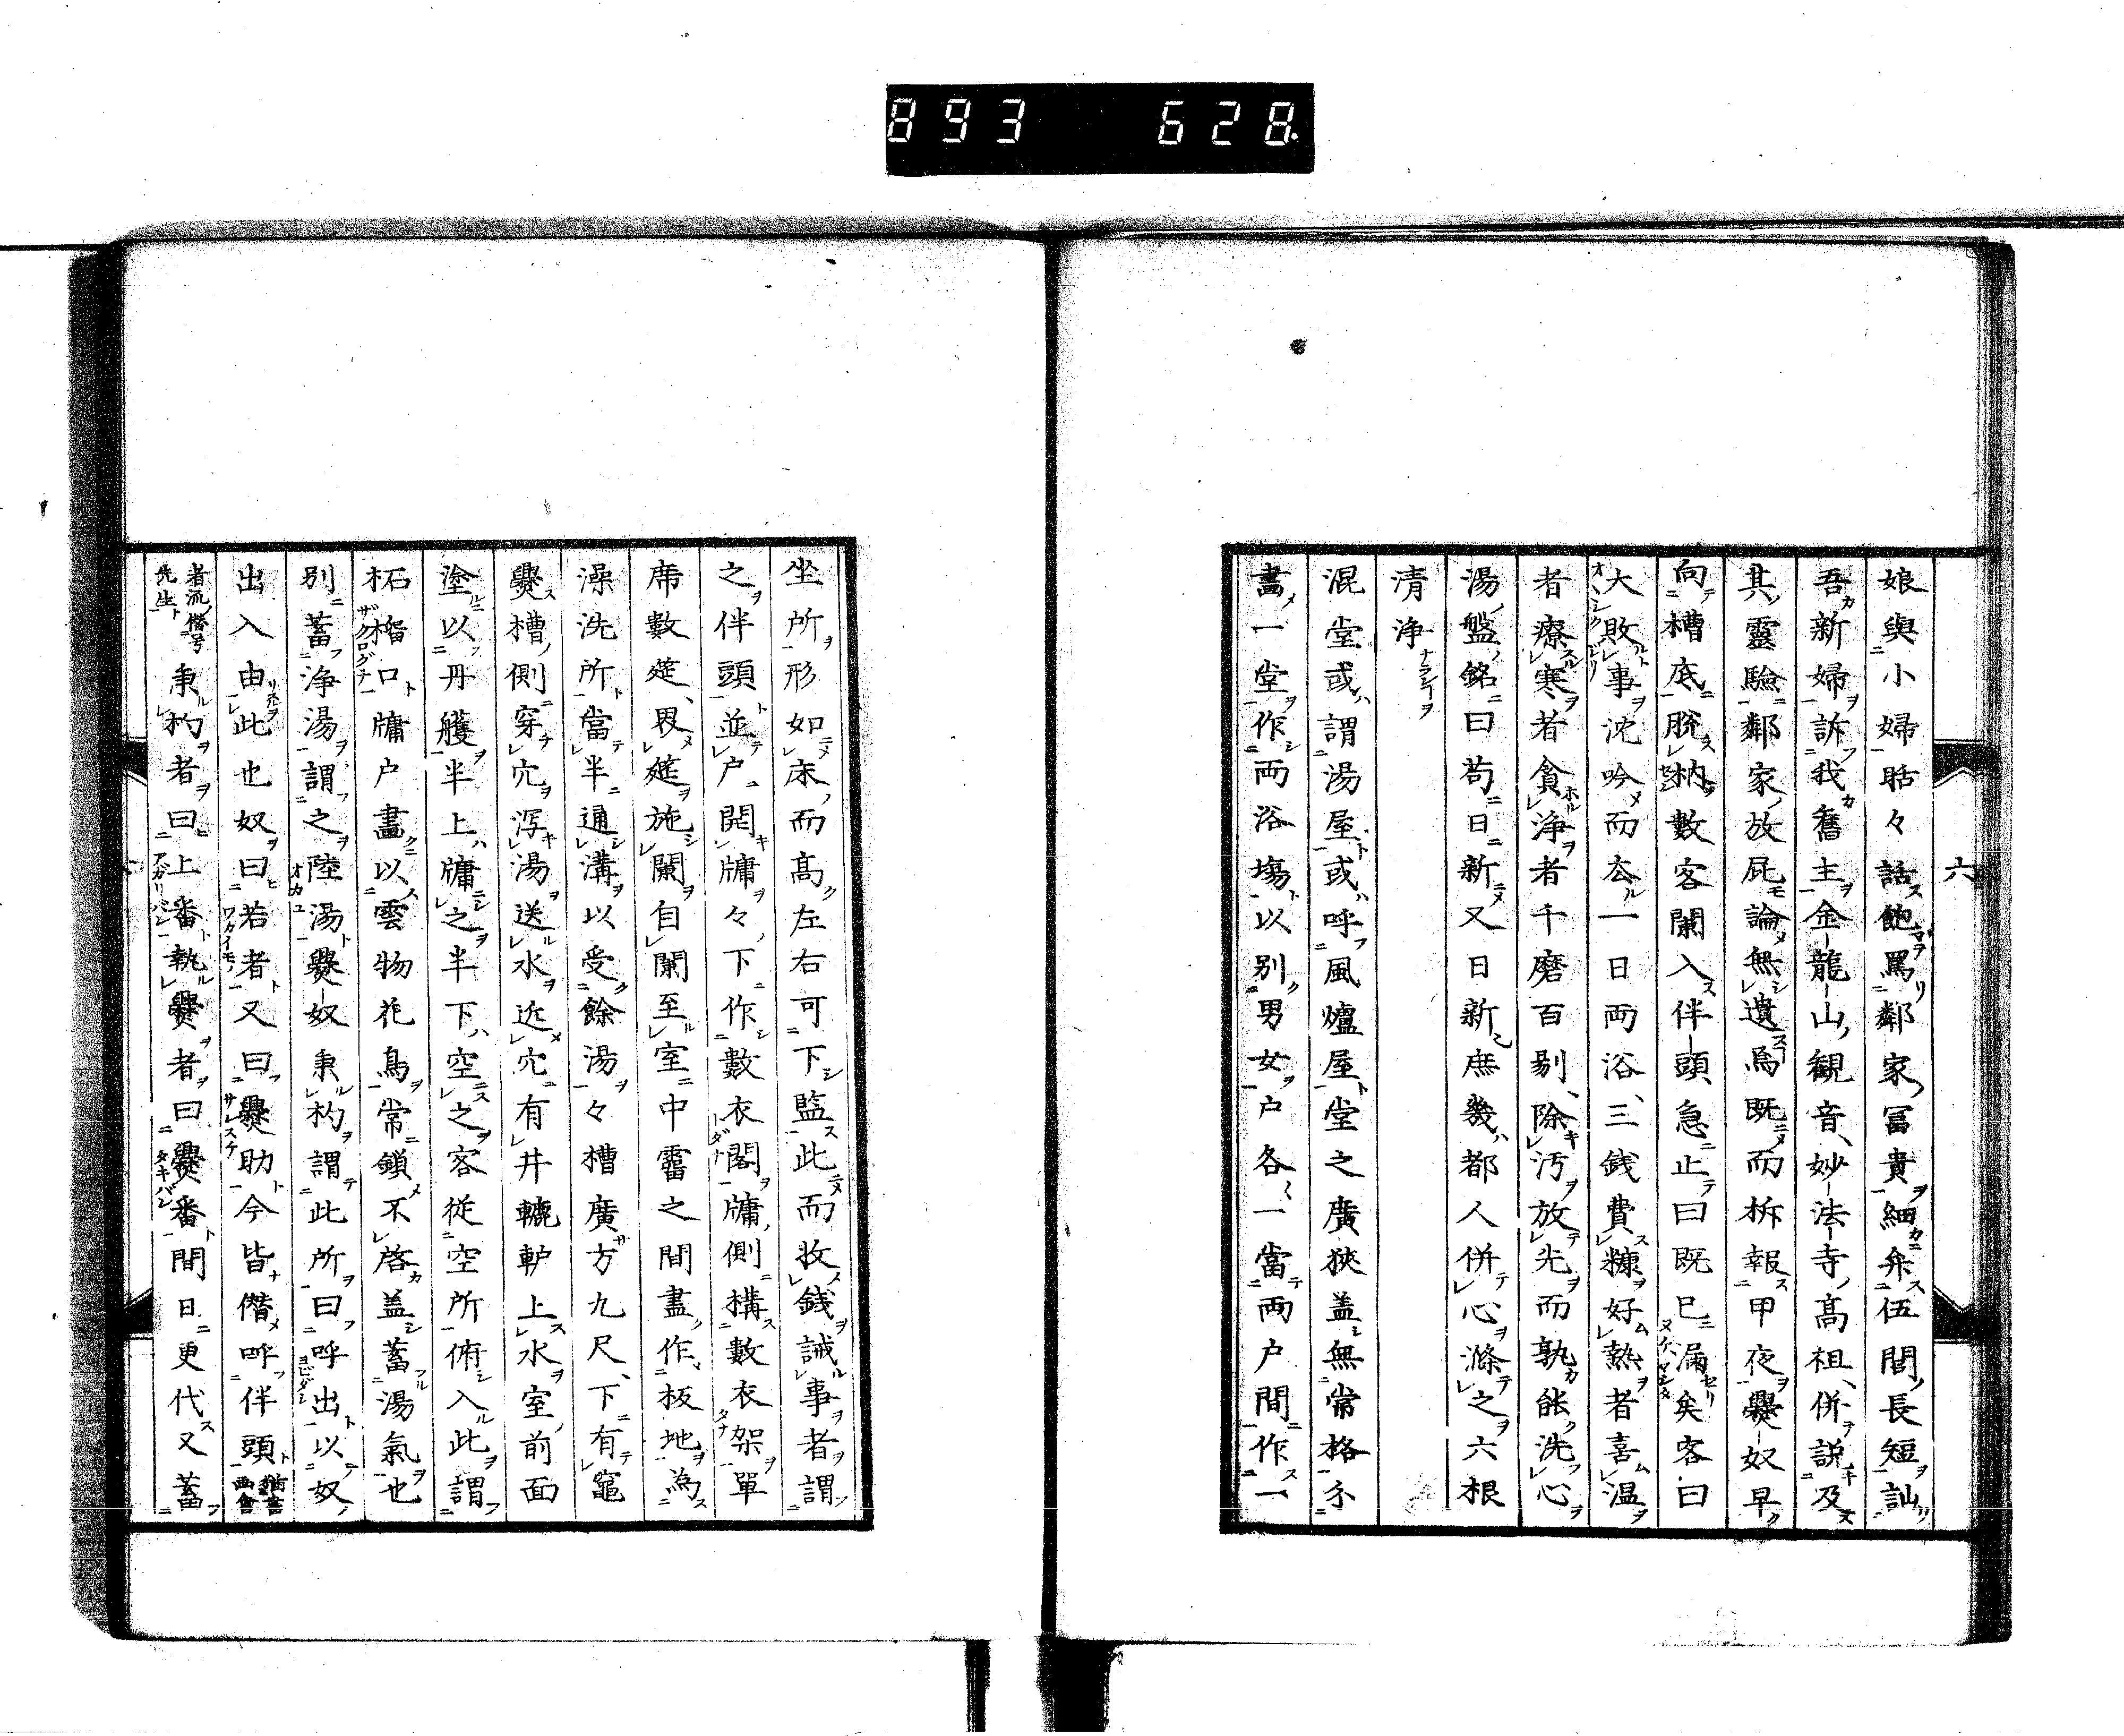 893 628.
六
娘與小婦聒々話飽罵鄰家冨貴細弁伍間長短訕
吾新婦訴我舊主金龍山観音妙法寺高祖併説及
其靈驗鄰家放屁論無遺焉既而柝報甲夜爨奴早
向槽底脫枘數客闌入伴頭急止曰既已漏矣客曰
大敗事沈吟而去一日両浴三銭費糠好熱者喜温
者療寒者貪浄者千磨百剔除汚放光而孰能洗心
湯盤銘曰苟日新又日新庶幾都人併心滌之六根
清浄
混堂或謂湯屋或呼風爐屋堂之廣狹盖無常格分
畫一堂作両浴場以别男女户各一當両户間作一
坐所形如床而髙左右可下監此而收銭誡事者謂
之伴頭並户開牗々下作數衣閣牗側構數衣架單
席數筵界筵施闌自闌至室中霤之間盡作板地為
澡洗所當半通溝以受餘湯々槽廣方九尺下有竈
爨槽側穿穴泻湯送水近穴有井轆轤上水室前面
塗以丹雘半上牗之半下空之客従空所俯入此謂
柘榴口牗户畫以雲物花鳥常鎖不啓盖蓄湯氣也
别蓄浄湯謂之陸湯爨奴秉杓謂此所曰呼出以奴
出入由此也奴曰若者又曰爨助今皆僭呼伴頭
者流僭号先生秉杓者曰上番執爨者曰爨番間日更代又蓄